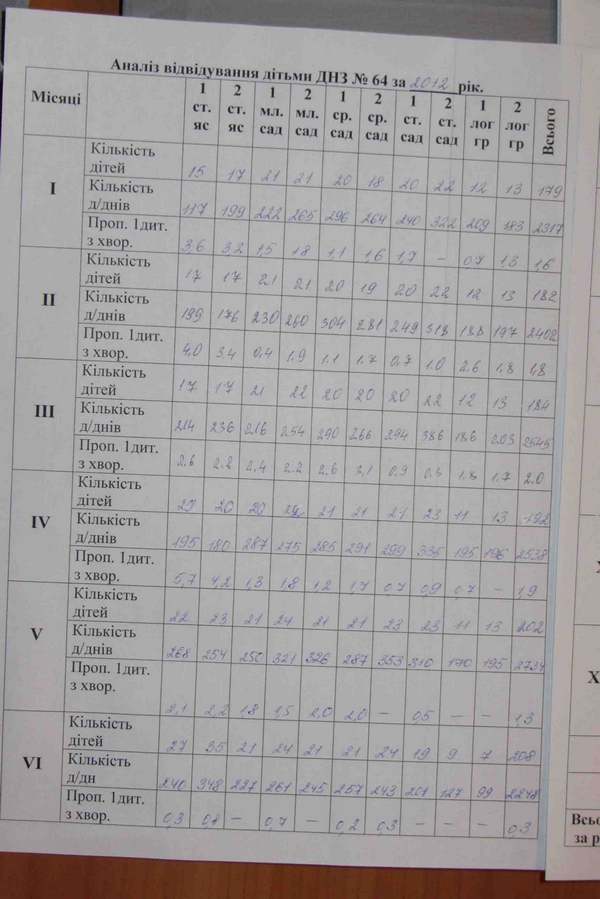 Аналіз відвідування дітьми ДНЗ № 64 за 2012 рік.
Місяці 1 ст. яс 2 ст. яс 1 мл. сад 2 мл. сад 1 ср. сад 2 ср. сад 1 ст. сад 2 ст. сад 1 лог гр 2 лог гр Всього
I
Кількість дітей 15 17 21 21 20 18 20 22 12 13 179
Кількість д/днів 117 199 222 265 296 264 240 322 209 183 2317
Проп. 1дит. з хвор. 3,6 3,2 1,5 1,8 1,1 1,6 1,7 – 0,7 1,3 1,6
II
Кількість дітей 17 17 21 21 20 19 20 22 12 13 182
Кількість д/днів 199 176 230 260 304 281 249 318 188 197 2402
Проп. 1дит. з хвор. 4,0 3,4 0,4 1,9 1,1 1,7 0,7 1,0 2,6 1,8 1,8
III
Кількість дітей 17 17 21 22 20 20 20 22 12 13 184
Кількість д/днів 214 236 216 254 290 266 294 386 186 203 2545
Проп. 1дит. з хвор. 2,6 2,2 2,4 2,2 2,6 3,1 0,9 0,3 1,8 1,7 2,0
IV
Кількість дітей 20 20 20 21 21 21 23 11 13 192
Кількість д/днів 195 180 287 275 285 291 299 335 195 196 2538
Проп. 1дит. з хвор. 5,7 4,2 1,3 1,8 1,2 1,7 0,7 0,9 0,7 – 1,9
V
Кількість дітей 22 23 21 24 21 21 23 23 11 13 202
Кількість д/днів 268 254 250 321 326 287 353 310 170 195 2734
Проп. 1дит. з хвор. 2,1 2,2 1,8 1,5 2,0 2,0 – 0,5 – – 1,3
VI
Кількість дітей 27 35 21 24 21 21 24 19 9 7 208
Кількість д/дн 240 348 227 261 245 257 243 201 127 99 2248
Проп. 1дит. з хвор. 0,3 0,8 – 0,7 – 0,2 0,3 – – – 0,3
за р